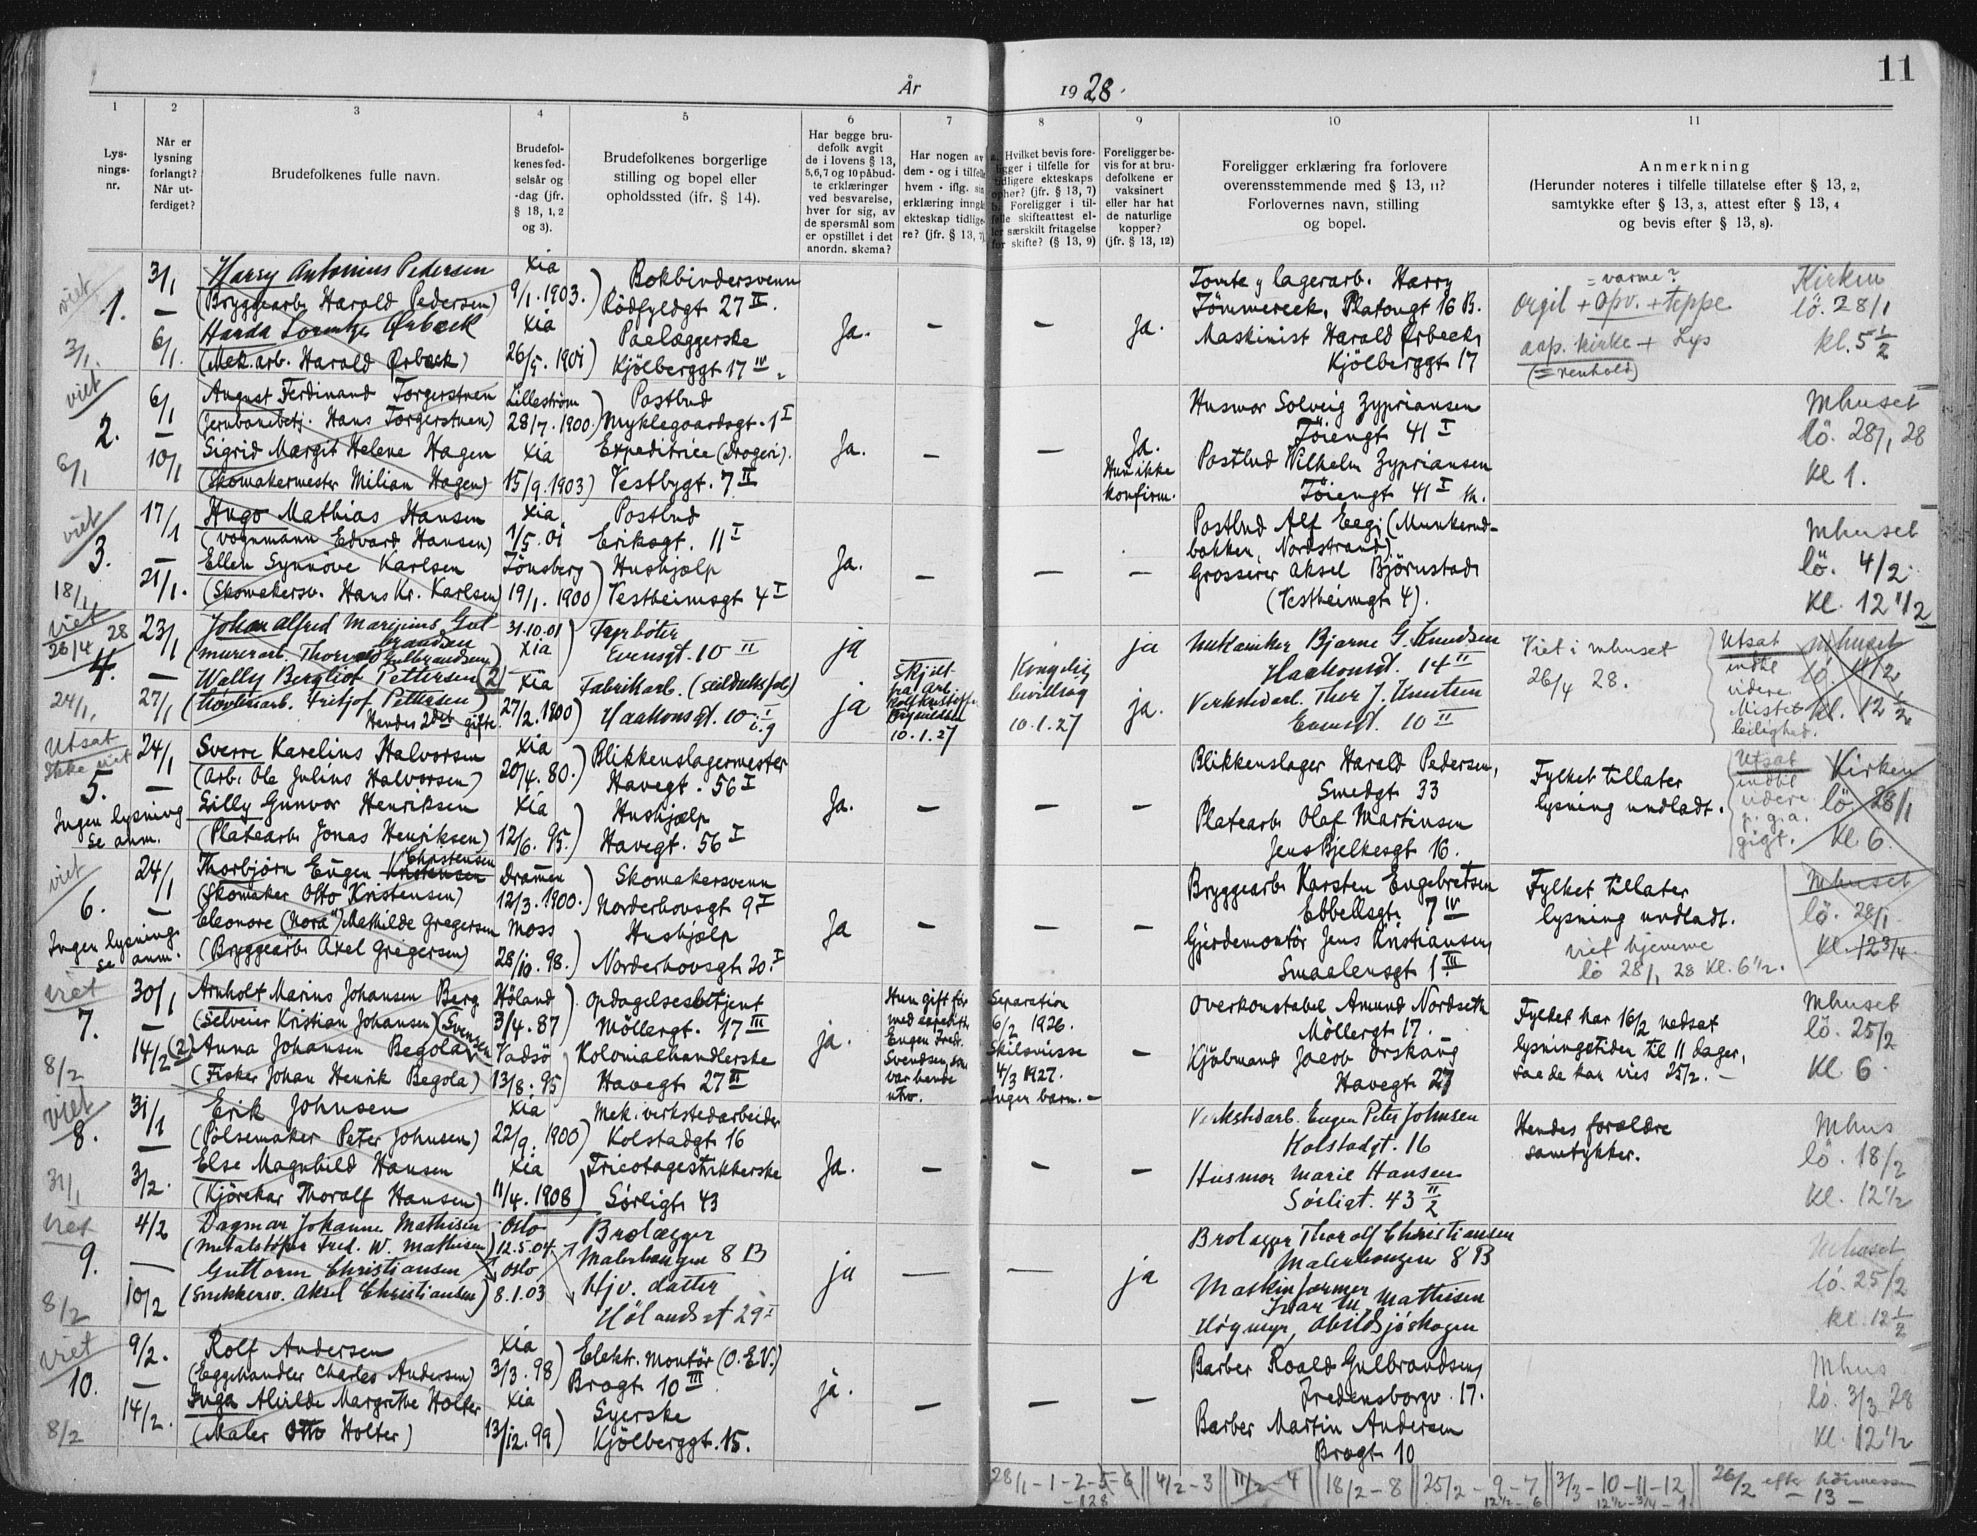 År 1928.
11
1 2 3 4 5 6 7 8 9 10 11
Lys-
nings-
nr.
Når er
lysning
forlangt?
Når ut-
ferdiget?
Brudefolkenes fulle navn.
Brudefol-
kenes fød-
selsår og
-dag (jfr.
§ 13, 1,2
og 3).
Brudefolkenes borgerlige
stilling og bopel eller
opholdssted (ifr. § 14).
Har begge bru-
defolk avgit
de i lovens § 13,
5,6,7 og 10 påbud-
te erklæringer
ved besvarelse,
hver for sig, av
de spørsmål som
er opstillet i det
anordn. skema?
Har nogen av
dem - og i tilfelle
hvem - iflg. sin
erklæring inngå
ekteskap tidlige-
re? (jfr. § 13, 7)
a. Hvilket bevis fore-
ligger i tilfelle for
tidligere ekteskaps
ophør? (jfr. § 13, 7)
b. Foreligger i til-
felle skifteattest el-
ler særskilt fritagelse
for skifte? (§ 13, 9)
Foreligger be-
vis for at bru-
defolkene er
vaksinert
eller har hat
de naturlige
kopper?
(jfr. § 13, 12)
Foreligger erklæring fra forlovere
overensstemmende med § 13, 11?
Forlovernes navn, stilling
og bopel.
Anmerkning
(Herunder noteres i tilfelle tillatelse efter § 13, 2,
samtykke efter § 13, 3, attest efter § 13, 4
og bevis efter § 13, 8).
viet
1.
3/1
3/1
—
6/1
Harry Antonius Pedersen
(Bryggearb. Harald Pedersen)
Ørbeck
(Mek. arb. Harald Ørbeck)
Xia
9/1. 1903.
Xia
26/5. 1901
Bokbindersvenn
Rödfyldgt 27 II.
Paelæggerske
Kjölberggt 17 IV
Ja.
—
—
Ja.
lagerarb. Harry
Platougt 16 B.
Maskinist Harald Ørbeck,
Kjölberggt 17
= varme?
orgil + opv. + teppe
aap. kirke + Lys
(= renhold)
Kirken
lö. 28/1
kl. 5 1/2
viet
2.
6/1
6/1
—
10/1
August Ferdinand Torgerstuen
(Jernbanebetj. Hans Torgerstuen)
Sigrid Margit Helene Hagen
(Skomakermester Milian Hagen)
Lilleström
28/7. 1900.
Xia
15/9. 1903)
Postbud
Myklegaardsgt. 1 I
Expeditrice (Drogeri).
Vestbygt. 7 II
Ja.
—
—
Ja.
Hun ikke
konfirm.
Husmor Solveig Zypriansen
Töiengt 41 I
Postbud Wilhelm Zypriansen
Töiengt 41 I
Mhuset
lö. 28/1 28
Kl 1.
viet
3.
18/1
17/1
—
21/1.
Hugo Mathias Hansen
(Vognmann Edvard Hansen)
Ellen Synnöve Karlsen
(Skomakersv. Hans Kr. Karlsen)
Xia
1/5. 01
Tönsberg
19/1. 1900
Postbud
Eriksgt. 11 I
Hushjælp
Vestheimsgt 4 I
Ja.
—
—
—
Postbud Alf Eegi (Munkerud-
bakken, Nordstrand)
Grosserer Aksel Björnstad
(Vestheimgt 4).
Mhuset
lö. 4/2.
Kl. 12 1/2
viet
26/4 28
4.
24/1.
23/1
—
27/1
Johan Alfred Marinius Gul-
brandsen
(murerarb. Thorvald Gulbrandsen)
Wally Bergliot Pettersen (2)
(Høvleriarb. Fritjof Pettersen)
Hendes 2det gifte
31.10.01
Xia
Xia
27/2. 1900)
Fyrbøter
Evensgt. 10 II
Fabrikarb.
Haakonsgt. 10 I
ja
ja
Skjilt
10.1.27
Kongelig
bevilling
10.1.27
ja
ja.
Mekaniker Bjarne G. Knudsen
Haakonsgt. 14 II
Verkstedarb. Thor J. Knutsen
Evensgt. 10 II
Viet i Mhuset
26/4 28.
Utsat
indtil
videre.
Mistet
leilighed.
Mhuset
lö. 11/2
kl. 12 1/2
Utsat
Ikke viet
5.
Ingen lysning
se anm.
24/1
—
Sverre Karelius Halvorsen
(Arb. Ole Julius Halvorsen)
Lilly Gunvor Henriksen
(Platearb. Jonas Henriksen)
Xia
20/4. 80.
Xia
12/6. 95.
Blikkenslagermester
Havegt. 56 I
Hushjælp
Havegt. 56 I
Ja.
—
—
—
Blikkenslager Harald Pedersen,
Smedgt 33
Platearb. Olaf Martinsen
Jens Bjelkesgt 16.
Fylket tillater
lysning undladt.
Utsat
indtil
videre
p. g. a.
gigt.
Kirken
lö. 28/1
Kl 6.
viet
6.
Ingen lysning.
se anm.
24/1
—
Thorbjörn Eugen Kristensen
Christensen
(Skomaker Otto Kristensen)
Eleonore (Nora) Mathilde Gregersen
(Bryggearb. Axel Gregersen)
Dramen
12/3. 1900.
Moss
28/10. 98.
Skomakersvenn
Norderhovsgt 9 I
Hushjælp
Norderhovsgt 20. I
Ja
—
—
—
Bryggearb. Karsten Engebretsen
Ebbellsgt. 7 IV
Gjerdemontör Jens Kristiansen,
Smaalensgt 1. III
Fylket tillater
lysning undladt.
viet hjemme
lö 28/1 28 Kl. 6 1/2.
Mhuset
lö. 28/1
Kl. 12 3/4
viet
7.
8/2
30/1
—
14/2
Arnholt Marius Johansen Berg
(Selveier Kristian Johansen)
(2) Anna Johansen Begola (Svensen
(Fisker Johan Henrik Begola)
Höland
3/4. 87
Vadsö
13/8. 95
Opdagelsesbetjent
Möllergt. 17 III
Kolonialhandlerske
Havegt 27 II
ja.
Hun gift för
Eugen Fredr.
Svendsen,
var hende
utro.
Separation
6/2 1926.
Skilsmisse
4/3 1927.
Ingen barn. —
—
Overkonstabel Amund Nordseth
Möllergt 17.
Kjöbmand Jacob Orskaug
Havegt 27
Fylket har 16/2 nedsat
lysningstiden til 11 dager,
saa de kan vies 25/2. —
Mhuset
lö. 25/2
Kl 6.
viet
8.
31/1
31/1
—
3/2.
Erik Johnsen
(Pölsemaker Peter Johnsen)
Else Magnhild Hansen
(Kjörekar Thoralf Hansen)
Xia
22/9. 1900
Xia
11/4. 1908)
Mek. verkstedarbeider
Kolstadgt 16
Tricotagestrikkerske
Sörligt 43
Ja.
—
—
—
Verkstedarb. Eugen Peter Johnsen
Kolstadgt. 16
Husmor Marie Hansen
Sörligt. 43 II/2
Hendes forældre
samtykker.
Mhus
lö. 18/2
Kl. 12 1/2
viet
9.
8/2
4/2
—
10/2
Dagmar Johanne Mathisen
(Metalstöper Fred. W. Mathisen)
Guttorm Christiansen
(Snekkersv. Aksel Christiansen)
Oslo
12.5.04.
Oslo
8.1.03
Brolægger
Malerhaugen 8 B
Hjv. datter
Hölandsgt 29 I
ja
—
—
ja
Brolægger Thoralf Christiansen
Malerhaugen 8 B
Maskinformer
Ivar M. Mathisen
Högmyr, Abildsjöskogen
Mhuset
lö. 25/2
kl. 12 1/2
viet
10.
8/2
9/2.
—
14/2.
Rolf Andersen
(Eggehandler Charles Andersen)
Inga Alvilde Margrethe Holter
(Maler Otto Holter)
Xia
3/3. 98)
Xia
13/12. 99)
Elektr. montör (O.E.V.)
Bragt 10 III
Syerske
Kjölberggt. 15.
ja.
—
—
—
Barber Roald Gulbrandsen,
Fredensborgv. 17.
Barber Martin Andersen
Bragt 10
Mhus
lö. 3/3 28
Kl. 12 1/2
28/1 - 1 - 2 - 5 - 6 || 4/2 - 3 || 11/2 - 4 || 18/2 - 8 || 25/2 - 9 - 7 || 3/3 - 10 - 11 - 12 || 26/2 efter höimessen
12 1/2 - 6
12 1/2 - 3/4 - 1
- 13 -